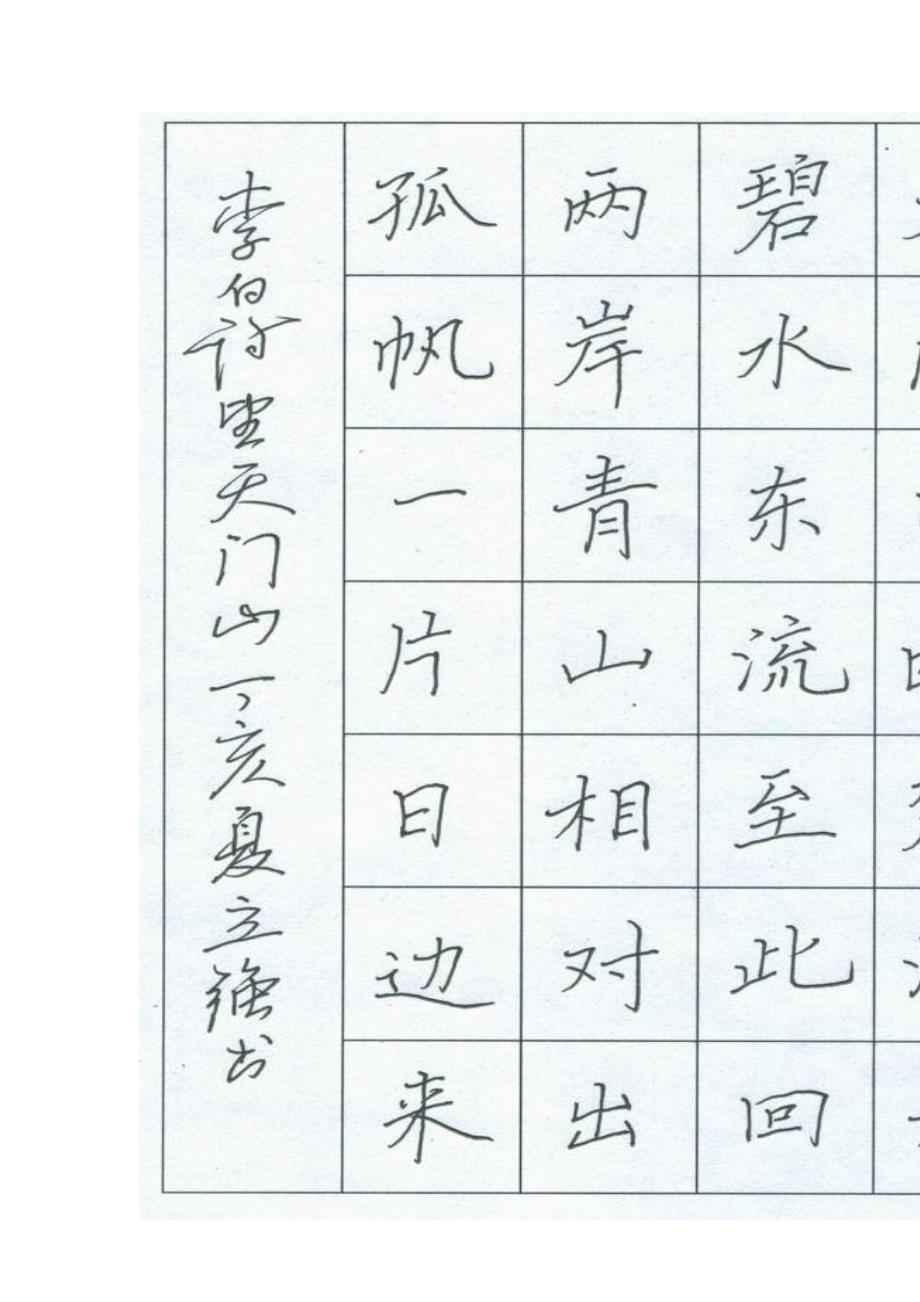 碧水东流至此回
两岸青山相对出
孤帆一片日边来
李白诗望天门山丁亥夏立强书